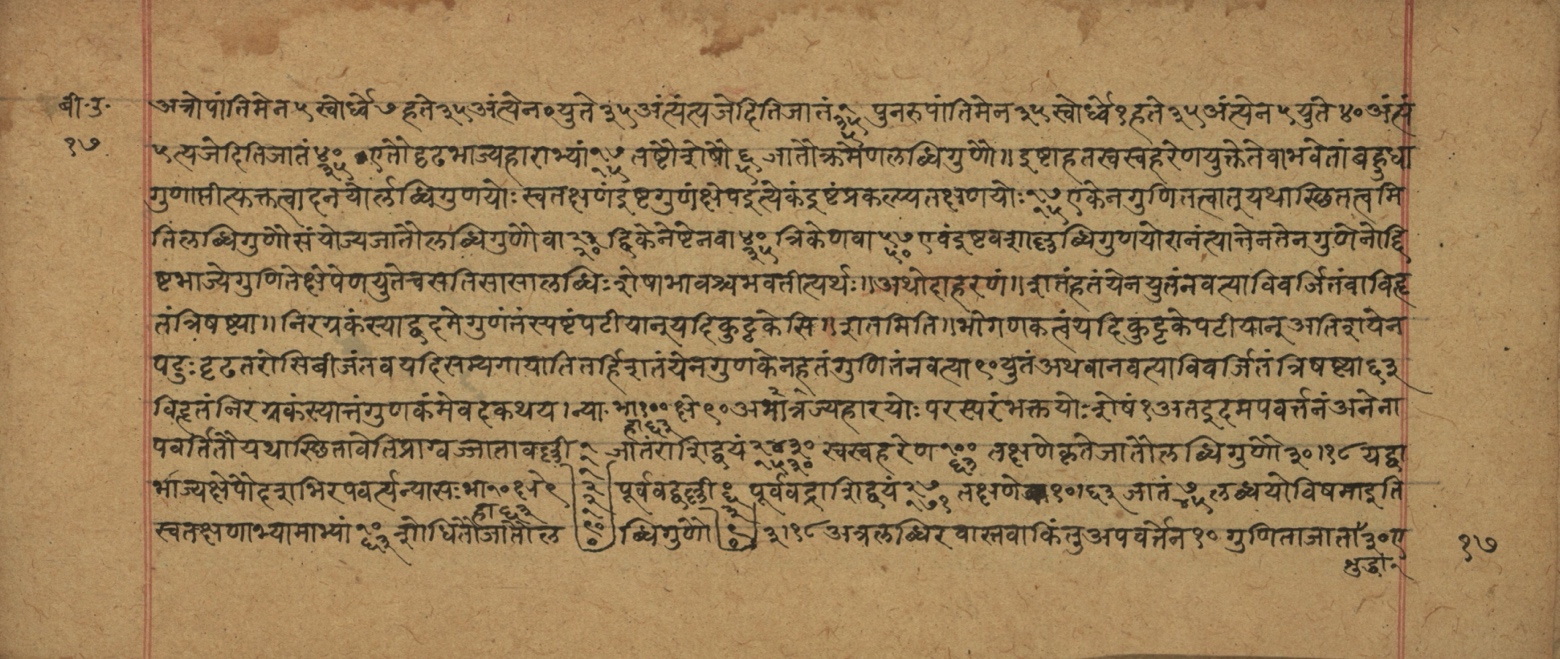 बी॰उ॰
१७
अत्रोपांतिमेन ५ स्वोर्ध्वे ७ हते ३५ अंत्येन ० युते ३५ अंत्यं त्यजेदिति जातं पुनरुपांतिमेन ३५ स्वोर्ध्वे १ हते ३५ अंत्येन ५ युते ४० अंत्यं
५ त्यजेदिति जातं ४० ३५ एतौ दृढभाज्यहाराभ्यां तष्टौ शेषौ जातौ क्रमेण लब्धिगुणौ ॥ इष्टाहतस्वस्वहरेण युक्ते ते वा भवेतां बहुधा
गुणाप्तीत्युक्तत्वादनयोर्लब्धिगुणयोः स्वतक्षणं इष्टगुणं क्षेप इत्येकं इष्टं प्रकल्प्य तक्षणयोः एकेन गुणितत्वात् यथास्छितत्वमि
ति लब्धिगुणौ संयोज्य जातौ लब्धिगुणौ वा २३ २० द्विकेनेष्टेन वा ४० ३५ त्रिकेण वा ५७ ५० एवं इष्टवशाल्लब्धिगुणयोरानंत्यात्तेन तेन गुणेनोद्दि
ष्टभाज्ये गुणिते क्षेपेण युते च सति सा सा लब्धिः शेषाभावश्च भवतीत्यर्थः ॥ अथोदाहरणं ॥ शतं हतं येन युतं नवत्या विवर्जितं वा विहृ
तं त्रिषष्ट्या ॥ निरग्रकं स्याद्वद मे गुणं तं स्पष्टं पटीयान् यदि कुट्टकेसि ॥ शतमिति ॥ भो गणक त्वं यदि कुट्टके पटीयान् अतिशयेन
पटुः दृढतरोसि बीजं तव यदि सम्यगायाति तर्हि शतं येन गुणकेन हतं गुणितं नवत्या ९० युतं अथवा नवत्या विवर्जितं त्रिषष्ट्या ६३
विहृतं निरग्रकं स्यात्तं गुणकं मे वद कथय । न्याः भा १०० क्षे ९० अत्र भाज्यहारयोः परस्परं भक्तयोः शेषं १ अत इदमपवर्त्तनं अनेना
हा ६३
पवर्तितौ यथास्छितावेवेति प्राग्वज्जाता वल्ली जातं राशिद्वयं २४३० १५३० स्वस्वहरेण १०० ६३ तक्षणे कृते जातौ लब्धिगुणौ ३० । १८ यद्वा
भाज्यक्षेपौ दशभिरपवर्त्य न्यासः भा १० क्षे ९ पूर्ववद्वल्ली पूर्ववद्राशिद्वयं २७ १७१ तक्षणे १० । ६३ जातं ७ ४५ लब्धयो विषमा इति
हा ६३
स्वतक्षणाभ्यामाभ्यां १० ६३ शोधितौ जातौ लब्धिगुणौ ३ । १८ अत्र लब्धिर वास्तवा किंतु अपवर्तेन १० गुणिता जाता ३० ए
१७